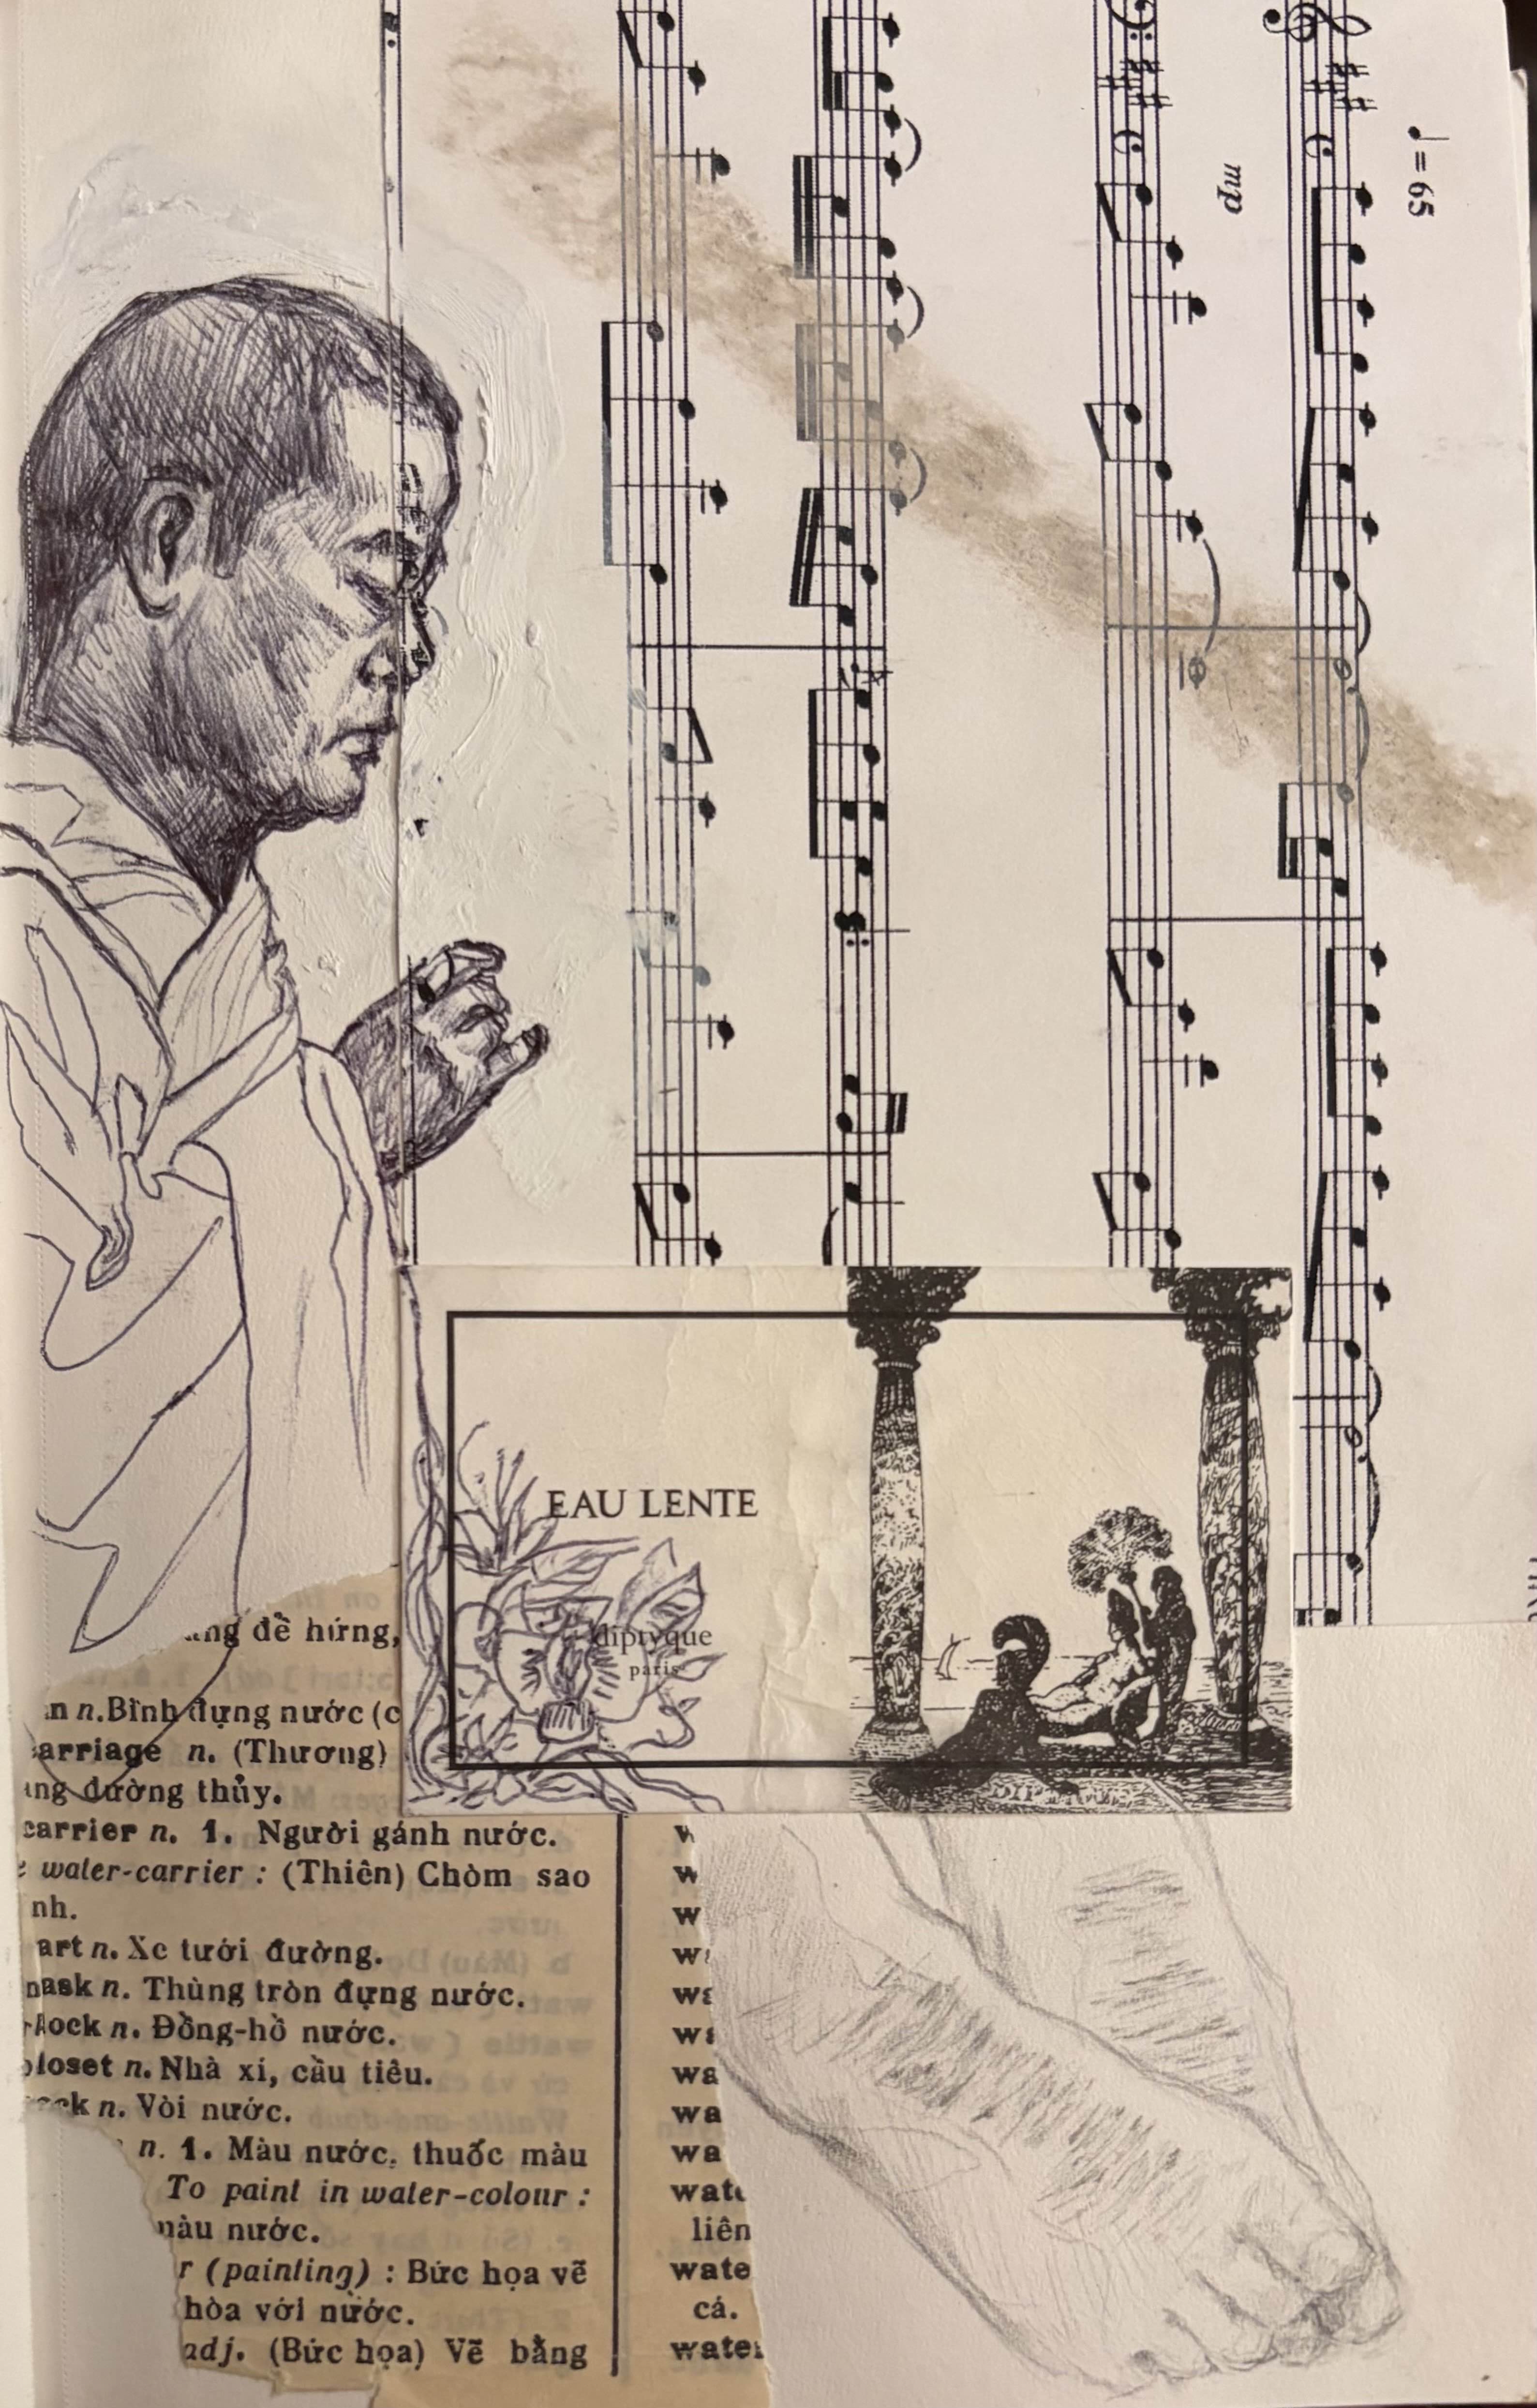 ♩ = 65
mp
EAU LENTE
diptyque
paris
đề hứng,
n. Bình đựng nước (c
arriage n. (Thương)
ng đường thủy.
carrier n. 1. Người gánh nước.
water-carrier : (Thiên) Chòm sao
nh.
art n. Xe tưới đường.
ask n. Thùng tròn đựng nước.
lock n. Đồng-hồ nước.
loset n. Nhà xí, cầu tiêu.
ck n. Vòi nước.
n. 1. Màu nước, thuốc màu
To paint in water-colour :
màu nước.
r (painting) : Bức họa vẽ
hòa với nước.
adj. (Bức họa) Vẽ bằng
w
w
w
w
wa
wa
wa
wa
wa
wate
liên
wate
cá.
water